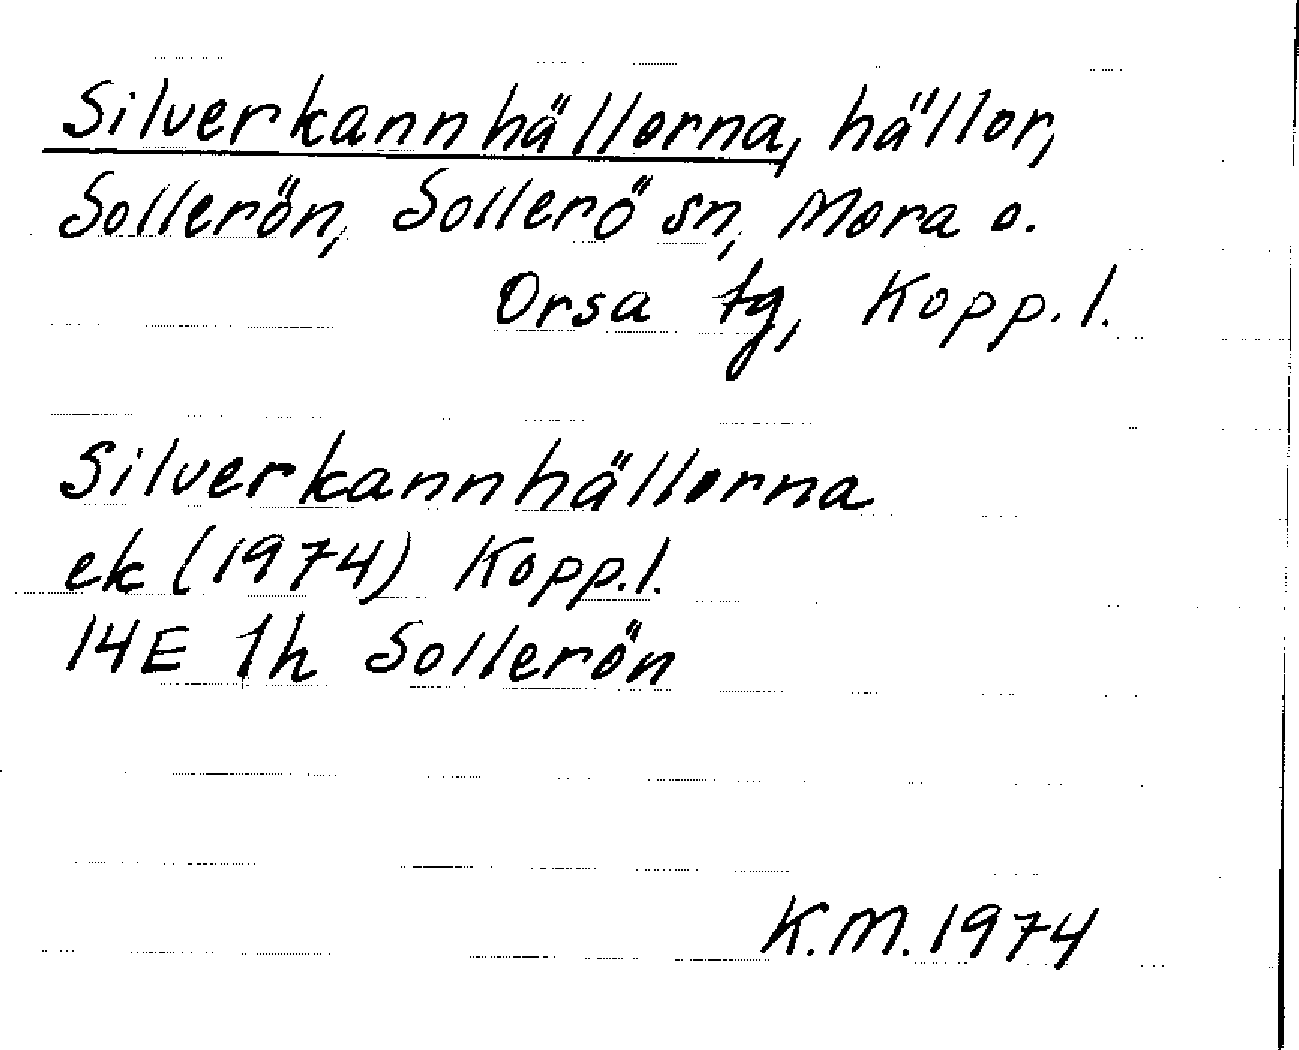 Silverkannhällorna, hällor,
Sollerön, Sollerö sn, Mora o.
Orsa tg, Kopp. l.
Silverkannhällorna
ek (1974) Kopp. l.
14E 1h Sollerön
K.M. 1974